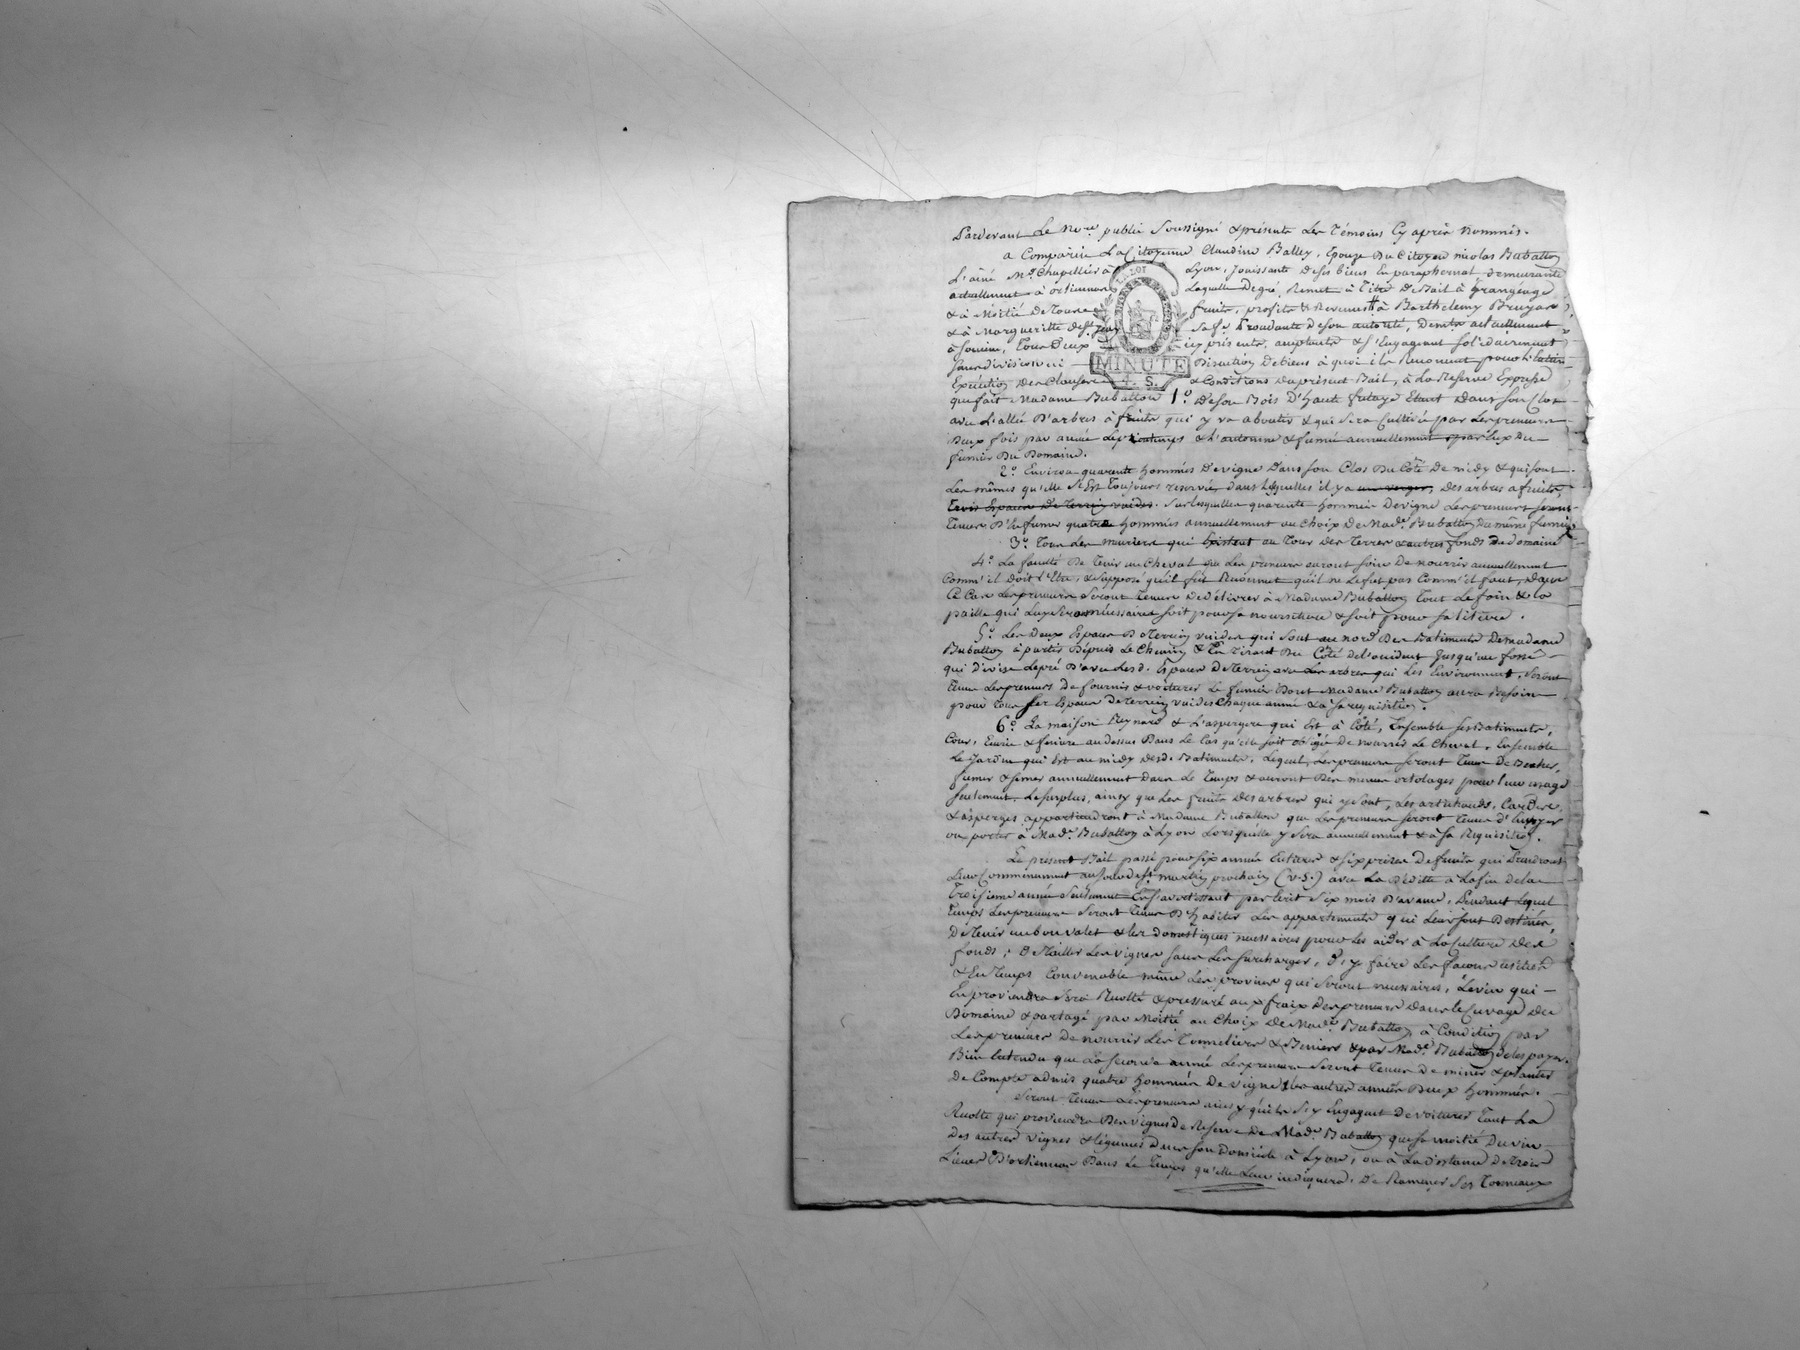 Pardevant Le Nore. public Soussigné & présents Les Témoins Cy après Nommés.
a Comparüe La Citoyenne Claudine Balley, Epouse Du Citoyen nicolas Bubatton
L'ainé Md. Chapellier à Lyon, Jouissante de ses biens En paraphernat, demeurante
actuellement à orlienas Laquelle De gré, Remet à Titre De Bail à Grangéage
& à Moitié De Tous fruits, profits & Revenus à Barthelemy Bruyas
& à Margueritte De St. Jean Sa fe. Procédante De son autorité, Demrts actuellement
à , Tous Deux icy présents, acceptants & s'Engageant solidairement
sans division ni Discution De biens à quoi ils Renoncent pour L'Entière
Exécution Des Clauses & Conditions Du présent Bail, à La Reserve Expresse
que fait Madame Bubatton 1º. De son Bois D'haute futaye Etant Dans son Clos
avec L'allée D'arbres à fruits qui y va aboutir & qui sera Cultivée par Les preneurs
Deux fois par année Le printemps & L'automne & fumée annuellement par Eux Du
fumier Du Domaine.
2º. Environ quarante hommées De vigne Dans son Clos Du Côté De midy & qui sont
Les mêmes qu'elle S'Est Toujours reservées, Dans Lesquelles il y a un verger, Des arbres a fruits,
Trois Espaces De Terrein vuides. Sur Lesquelles quarante hommées De vigne Les preneurs seront
Tenus D'En fumer quatre hommées annuellement au Choix De Made. Bubatton Du même fumier
3º. Tous Les muriers qui Existent au Tour Des Terres & autres fonds Du domaine
4º. La faculté De Tenir un Cheval que Les preneurs auront soin De nourrir annuellement
Comm'il doit L'Etre, & supposé qu'il fut Reconnut qu'il ne Le fut pas Comm'il faut, dans
Ce Cas Les preneurs Seront Tenus De Délivrer à Madame Bubatton Tout Le foin & la
paille qui Luy Seront nécessaires soit pour sa nourriture & soit pour sa litière.
5º. Les Deux Espaces De Terrein vuides qui sont au nord Des Batiments De madame
Bubatton à partir Depuis Le Chemin & En Tirant Du Côté de L'occident Jusqu'au fossé
qui Divise Le pré D'avec Les d. Espaces De Terrein avec Les arbres qui Les Environnent, Seront
Tenus Les preneurs De fournir & voiturer Le fumier Dont Madame Bubatton aura Besoin
pour Tous Ses Espaces De Terrein vuides Chaque année & à Sa requisition.
6º. La maison Reynard & L'aspergere qui Est à Côté, Ensemble Ses Batiments,
Cour, Ecurie & feniere au dessus Dans Le Cas qu'elle soit obligée De nourrir Le Cheval, Ensemble
Le Jardin qui Est au midy Des d. Batiments, Lequel Les preneurs seront Tenus De Becher,
fumer & semer annuellement Dans Le Temps & auront Des menus ortolages pour Leur usage
seulement. Le surplus, ainsy que Les fruits Des arbres qui y sont, Les artichauds, Cardes,
& asperges appartiendront à Madame Bubatton que Les preneurs seront Tenus D'Envoyer
ou porter à Made. Bubatton à Lyon Lorsqu'elle y Sera annuellement & à Sa Requisition.
Le present Bail passé pour six années Entieres & six prises De fruits qui Prendront
Leur Commencement au jour de St. martin prochain (v. s.) avec La Déditte à La fin De la
Troisieme année seulement En s'avertissant par Ecrit Six mois D'avance, Pendant Lequel
Temps Les preneurs Seront Tenus D'habiter Les appartements qui Leur sont Destinés,
De Tenir un bon valet & les domestiques necessaires pour Les aider à La Culture Des
fonds; De Tailler Les vignes sans Les surcharger, D'y faire Les façons usitées
& En Temps Convenable même Les provins qui seront necessaires, Le vin qui
En proviendra sera Recolté & pressuré aux fraix Des preneurs Dans Le Cuvage Du
Domaine & partagé par Moitié au Choix De Made. Bubatton à Condition par
Les preneurs De nourrir Les Tonneliers & & par Made. Bubatton de les payer.
Bien Entendu que La seconde année Les preneurs Seront Tenus De miner & planter
De Compte à demis quatre hommées De vigne & les autres années Deux hommées.
Seront Tenus Les preneurs ainsy qu'ils S'y Engagent De voiturer Tant La
Recolte qui proviendra Des vignes De Reserve De Made. Bubatton que sa moitié Du vin
Des autres vignes & légumes Dans son Domicile à Lyon, ou à La Distance De Trois
Lieues D'orlienas Dans Le Temps qu'elle Leur indiquera. De Ramener Ses Tonneaux
LOZOT
MINUTE
4. S.